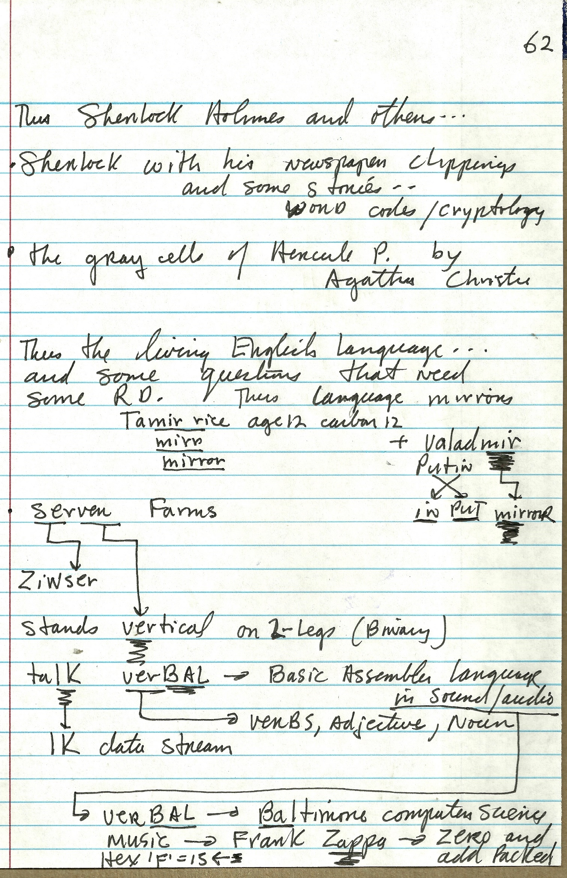 62
Thus Sherlock Holmes and others...
• Sherlock with his newspaper clippings
and some stories --
word codes/cryptology
• the gray cells of Hercule P. by
Agatha Christie
Thus the living English Language...
and some questions that need
some RD. Thus language mirrors
Tamir rice age 12 carbon 12
mirr
mirror
+ Valadmir
Putin
in Put mirroR
• Server Farms
Ziwser
stands vertical on 2-Legs (Binary)
talk verBAL → Basic Assembler Language
in sound/audio
verBS, Adjective, Noun
1K data stream
verBAL → Baltimore computer science
music → Frank Zappa → Zero and
Hex 'F' = 15 add Packed